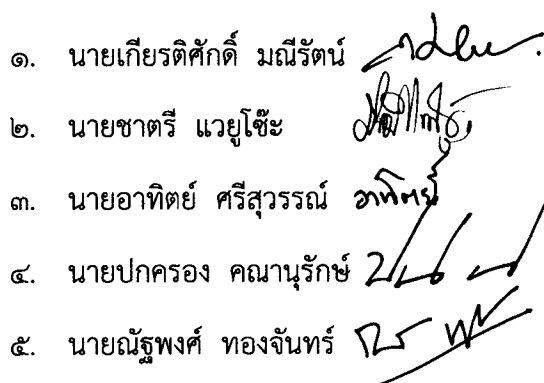 ๑. นายเกียรติศักดิ์ มณีรัตน์
๒. นายชาตรี แวยูโซ๊ะ
๓. นายอาทิตย์ ศรีสุวรรณ์ อาทิตย์
๔. นายปกครอง คณานุรักษ์
๕. นายณัฐพงศ์ ทองจันทร์